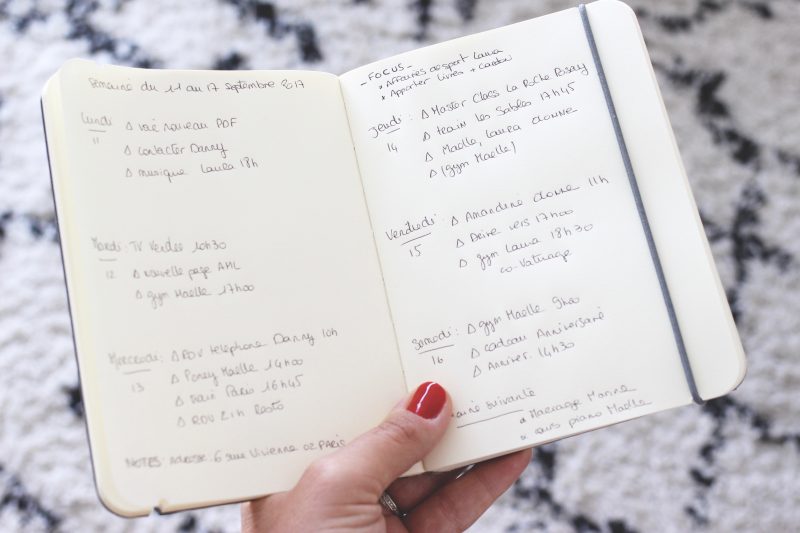 Semaine du 11 au 17 septembre 2017
Lundi
11
Δ voie nouveau PDF
Δ contacter Danny
Δ musique Laura 18h
Mardi: TV Vendée 10h30
12 Δ nouvelle page AML
Δ gym Maelle 17h00
Mercredi: Δ RDV téléphone Danny 10h
13 Δ Poney Maelle 14h00
Δ train Paris 16h45
Δ RDV 21h Resto
NOTES: ADRESSE: 6 rue Vivienne 02 PARIS
- FOCUS -
* Affaires de sport Laura
* Apporter livres +
Jeudi: Δ Master Class La Roche Posay
14 Δ train Les Sables 17h45
Δ Maelle, Laura danse
Δ (gym Maelle)
Vendredi: Δ Amandine danse 11h
15 Δ vers 17h00
Δ gym Laura 18h30
co-voiturage
Samedi: Δ gym Maelle 9h00
16 Δ cadeau Anniversaire
Δ Anniver. 14h30
suivante
* Maerage Marine
* cours piano Maelle